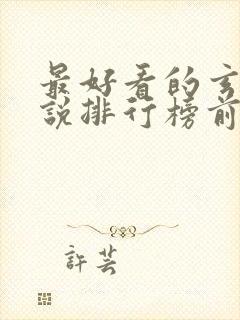 最好看的玄
說排行榜前
許芸